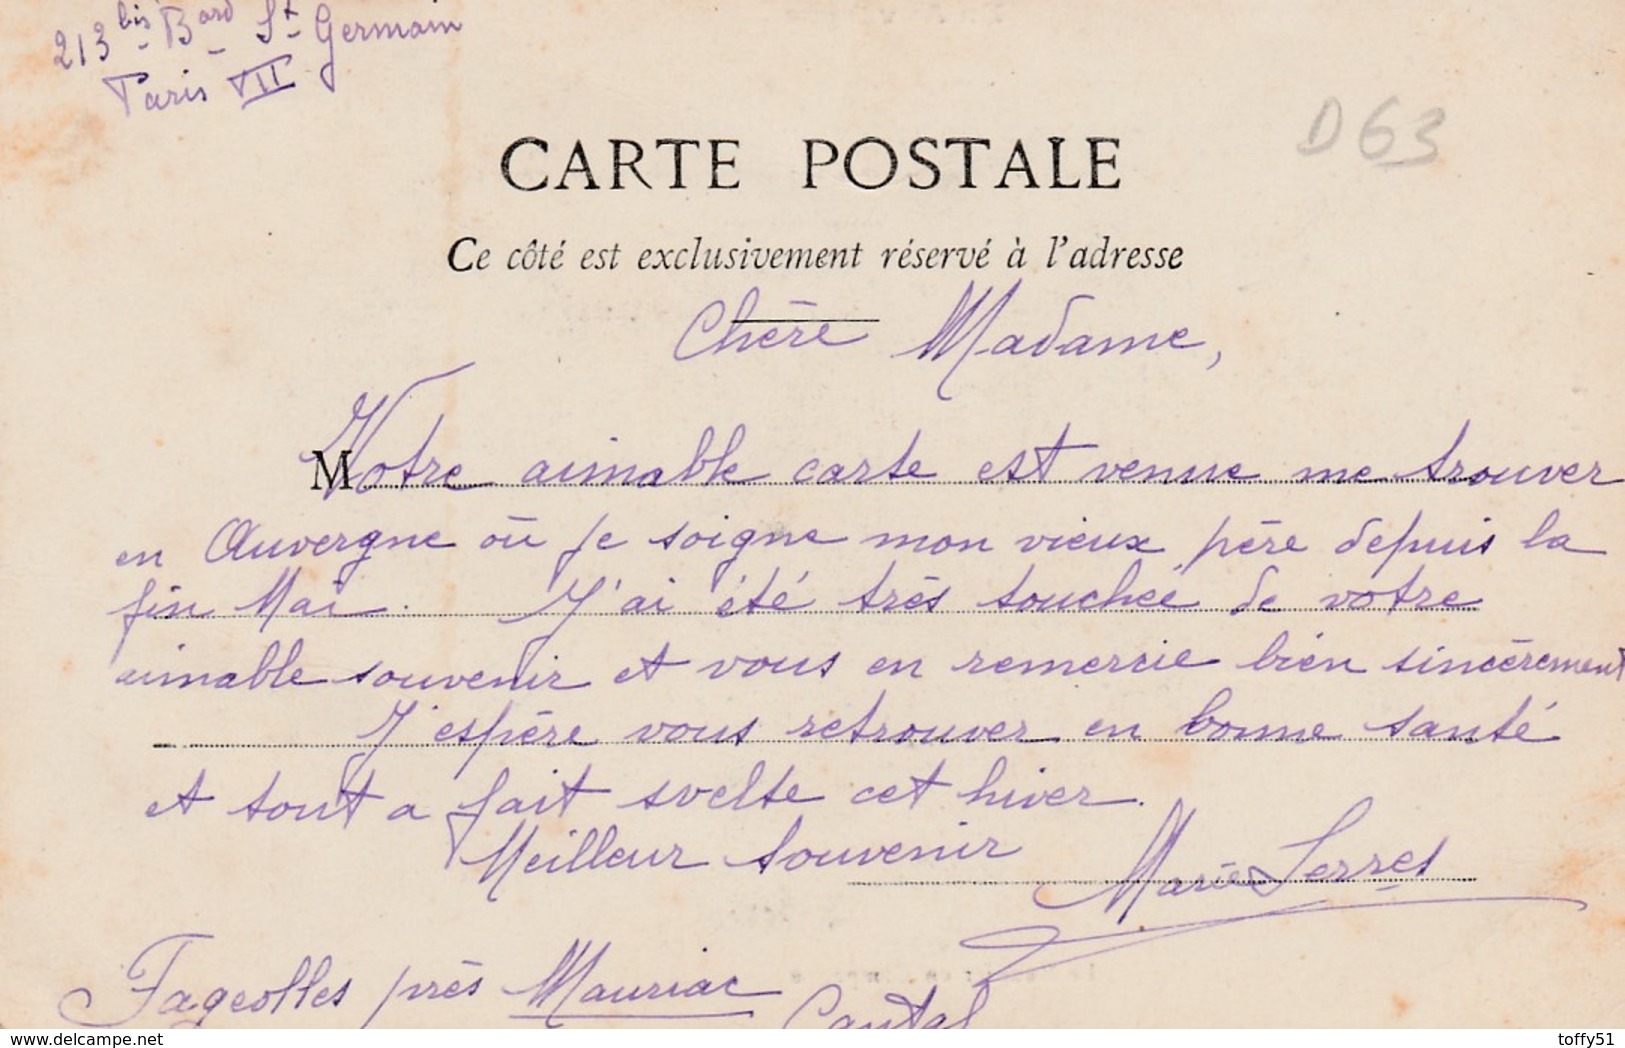 213 bis Bard St Germain
Paris VII
D63
CARTE POSTALE
Ce côté est exclusivement réservé à l'adresse
Chère Madame,
M
Votre aimable carte est venue me trouver
en Auvergne où je soigne mon vieux père depuis la
fin Mai. J'ai été très touchée de votre
aimable souvenir et vous en remercie bien sincèrement
J'espère vous retrouver en bonne santé
et tout a fait svelte cet hiver.
Meilleur souvenir
Marie Serres
Fageolles près Mauriac
Cantal
www.delcampe.net
toffy51